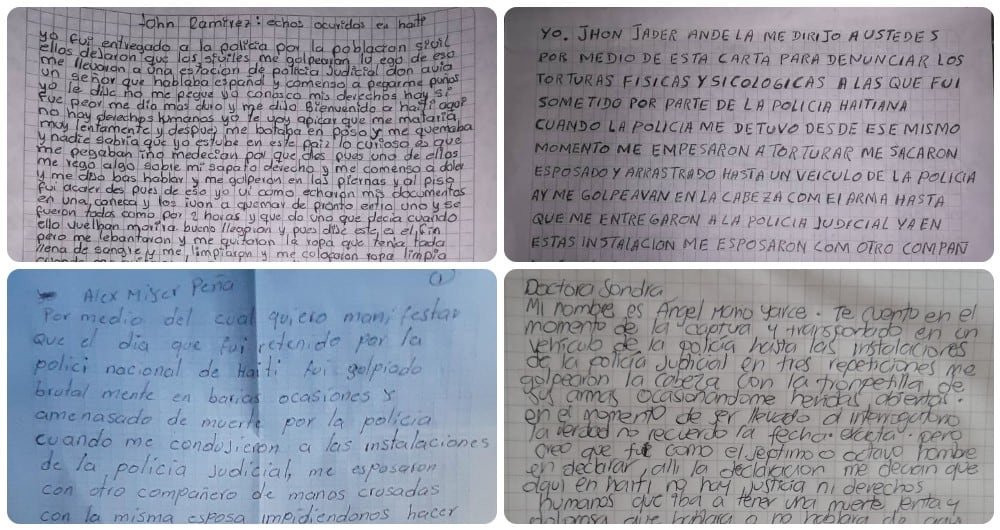 John Ramirez: echos ocurridos en haiti
yo fui entregado a la policia por la poblacion sivil
ellos dejaron que los siviles me golpearon luego de eso
me llevaron a una estacion de policia Judicial don avia
un señor que hablaba español y comenso a pegarme puños
yo le dije no me pegue yo conosco mis derechos hay si
fue peor me dio mas duro y me dijo Bienvenido a haiti aqui
no hay derechos humanos yo te voy apicar que me mataria
muy lentamente y despues me botaba en poso y me quemaba
y nadie sabria que yo estube en este paiz lo curioso es que
me pegaban ino medecian por que des pues uno de ellos
me rego algo sobre mi sapato derecho y me comenso a doler
y me dijo bas hablar y me golperon en las piernas y al piso
fui acaer des pues de eso yo vi como echaron mis documentos
en una caneca y los ivan a quemar de pronto entro uno y se
fueron todos como por 2 horas y que do uno que decia cuando
ello vuelban morira bueno llegaron y pues dije este es el fin
pero me lebantaron y me quitaron la ropa que tenia toda
llena de sangre y me limpiaron y me colocaron ropa limpia
YO. JHON JADER ANDELA ME DIRIJO A USTEDES
POR MEDIO DE ESTA CARTA PARA DENUNCIAR LOS
TORTURAS FISICAS Y SICOLOGICAS A LAS QUE FUI
SOMETIDO POR PARTE DE LA POLICIA HAITIANA
CUANDO LA POLICIA ME DETUVO DESDE ESE MISMO
MOMENTO ME EMPESARON A TORTURAR ME SACARON
ESPOSADO Y ARRASTRADO HASTA UN VEICULO DE LA POLICIA
AY ME GOLPEAVAN EN LA CABEZA COM EL ARMA HASTA
QUE ME ENTREGARON A LA POLICIA JUDICIAL YA EN
ESTAS INSTALACION ME ESPOSARON COM OTRO COMPAN
Alex Miyer Peña
1
Por medio del cual quiero manifestar
que el dia que fui retenido por la
polici nacional de Haiti fui golpiado
brutal mente en barias ocasiones y
amenasado de muerte por la policia
cuando me condusieron a las instalaciones
de la policia Judicial, me esposaron
con otro compañero de manos crusadas
con la misma esposa impidiendonos hacer
Doctora Sondra
Mi nombre es Angel Mario Yarce. Te cuento en el
momento de la captura y transportado en un
vehiculo de la policia hasta las instalaciones
de la policia Judicial en tres repeticiones me
golpearon la cabeza con la trompetilla de
sus armas ocasionandome heridas abiertas.
en el momento de ser llevado al interrogatorio
la verdad no recuerdo la fecha exacta. pero
creo que fui como el septimo o octavo hombre
en declarar, alli la declaracion me decian que
aqui en haiti no hay justicia ni derechos
humanos que iba a tener una muerte lenta y
dolorosa que hablara o no hablara